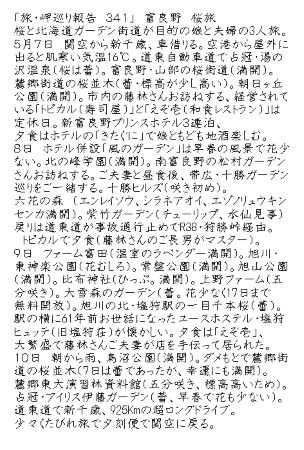 「旅・岬巡り報告 341」 富良野 桜旅
桜と北海道ガーデン街道が目的の娘と夫婦の3人旅。
5月7日 関空から新千歳、車借りる。空港から屋外に
出ると肌寒い気温16℃。道東自動車道で占冠・湯の
沢温泉(桜は蕾)。富良野・山部の桜街道(満開)。
麓郷街道の桜並木(蕾・標高が少し高い)。朝日ヶ丘
公園(満開)。市内の藤林さんお訪ねする、経営されて
いる「トピカル(寿司屋)」と「えぞ壱(和食レストラン)」は
定休日。新富良野プリンスホテル3連泊、
夕食はホテルの「きたぐに」で娘ともども地酒楽しむ。
8日 ホテル併設「風のガーデン」は早春の風景で花少
ない。北の峰学園(満開)。南富良野の松村ガーデン
さんお訪ねする。ご夫妻と昼食後、帯広・十勝ガーデン
巡りをご一緒する。十勝ヒルズ(咲き初め)。
六花の森 (エンレイソウ、シラネアオイ、エゾノリュウキン
センカ満開)。紫竹ガーデン(チューリップ、水仙見事)
戻りは道東道が事故通行止めでR38・狩勝峠経由。
トピカルで夕食(藤林さんのご長男がマスター)。
9日 ファーム富田(温室のラベンダー満開)。旭川・
東神楽公園(花むしろ)。常盤公園(満開)。旭山公園
(満開)。比布神社(ひっぷ。満開)。上野ファーム(五
分咲き)。大雪森のガーデン(蕾。花少なく17日まで
無料開放)。旭川の北・塩狩駅の一目千本桜(蕾)。
駅の横に61年前お世話になったユースホステル・塩狩
ヒュッテ(旧塩狩荘)が懐かしい。夕食は「えぞ壱」、
大繁盛で藤林さんご夫妻が店を手伝って居られた。
10日 朝から雨、鳥沼公園(満開)。ダメもとで麓郷街
道の桜並木(7日は蕾であったが、幸運にも満開)。
麓郷東大演習林資料館(五分咲き、標高高いため)。
占冠・アイリス伊藤ガーデン(蕾、早春で花も少ない)。
道東道で新千歳、925Kmの超ロングドライブ。
少々くたびれ旅で夕刻便で関空に戻る。